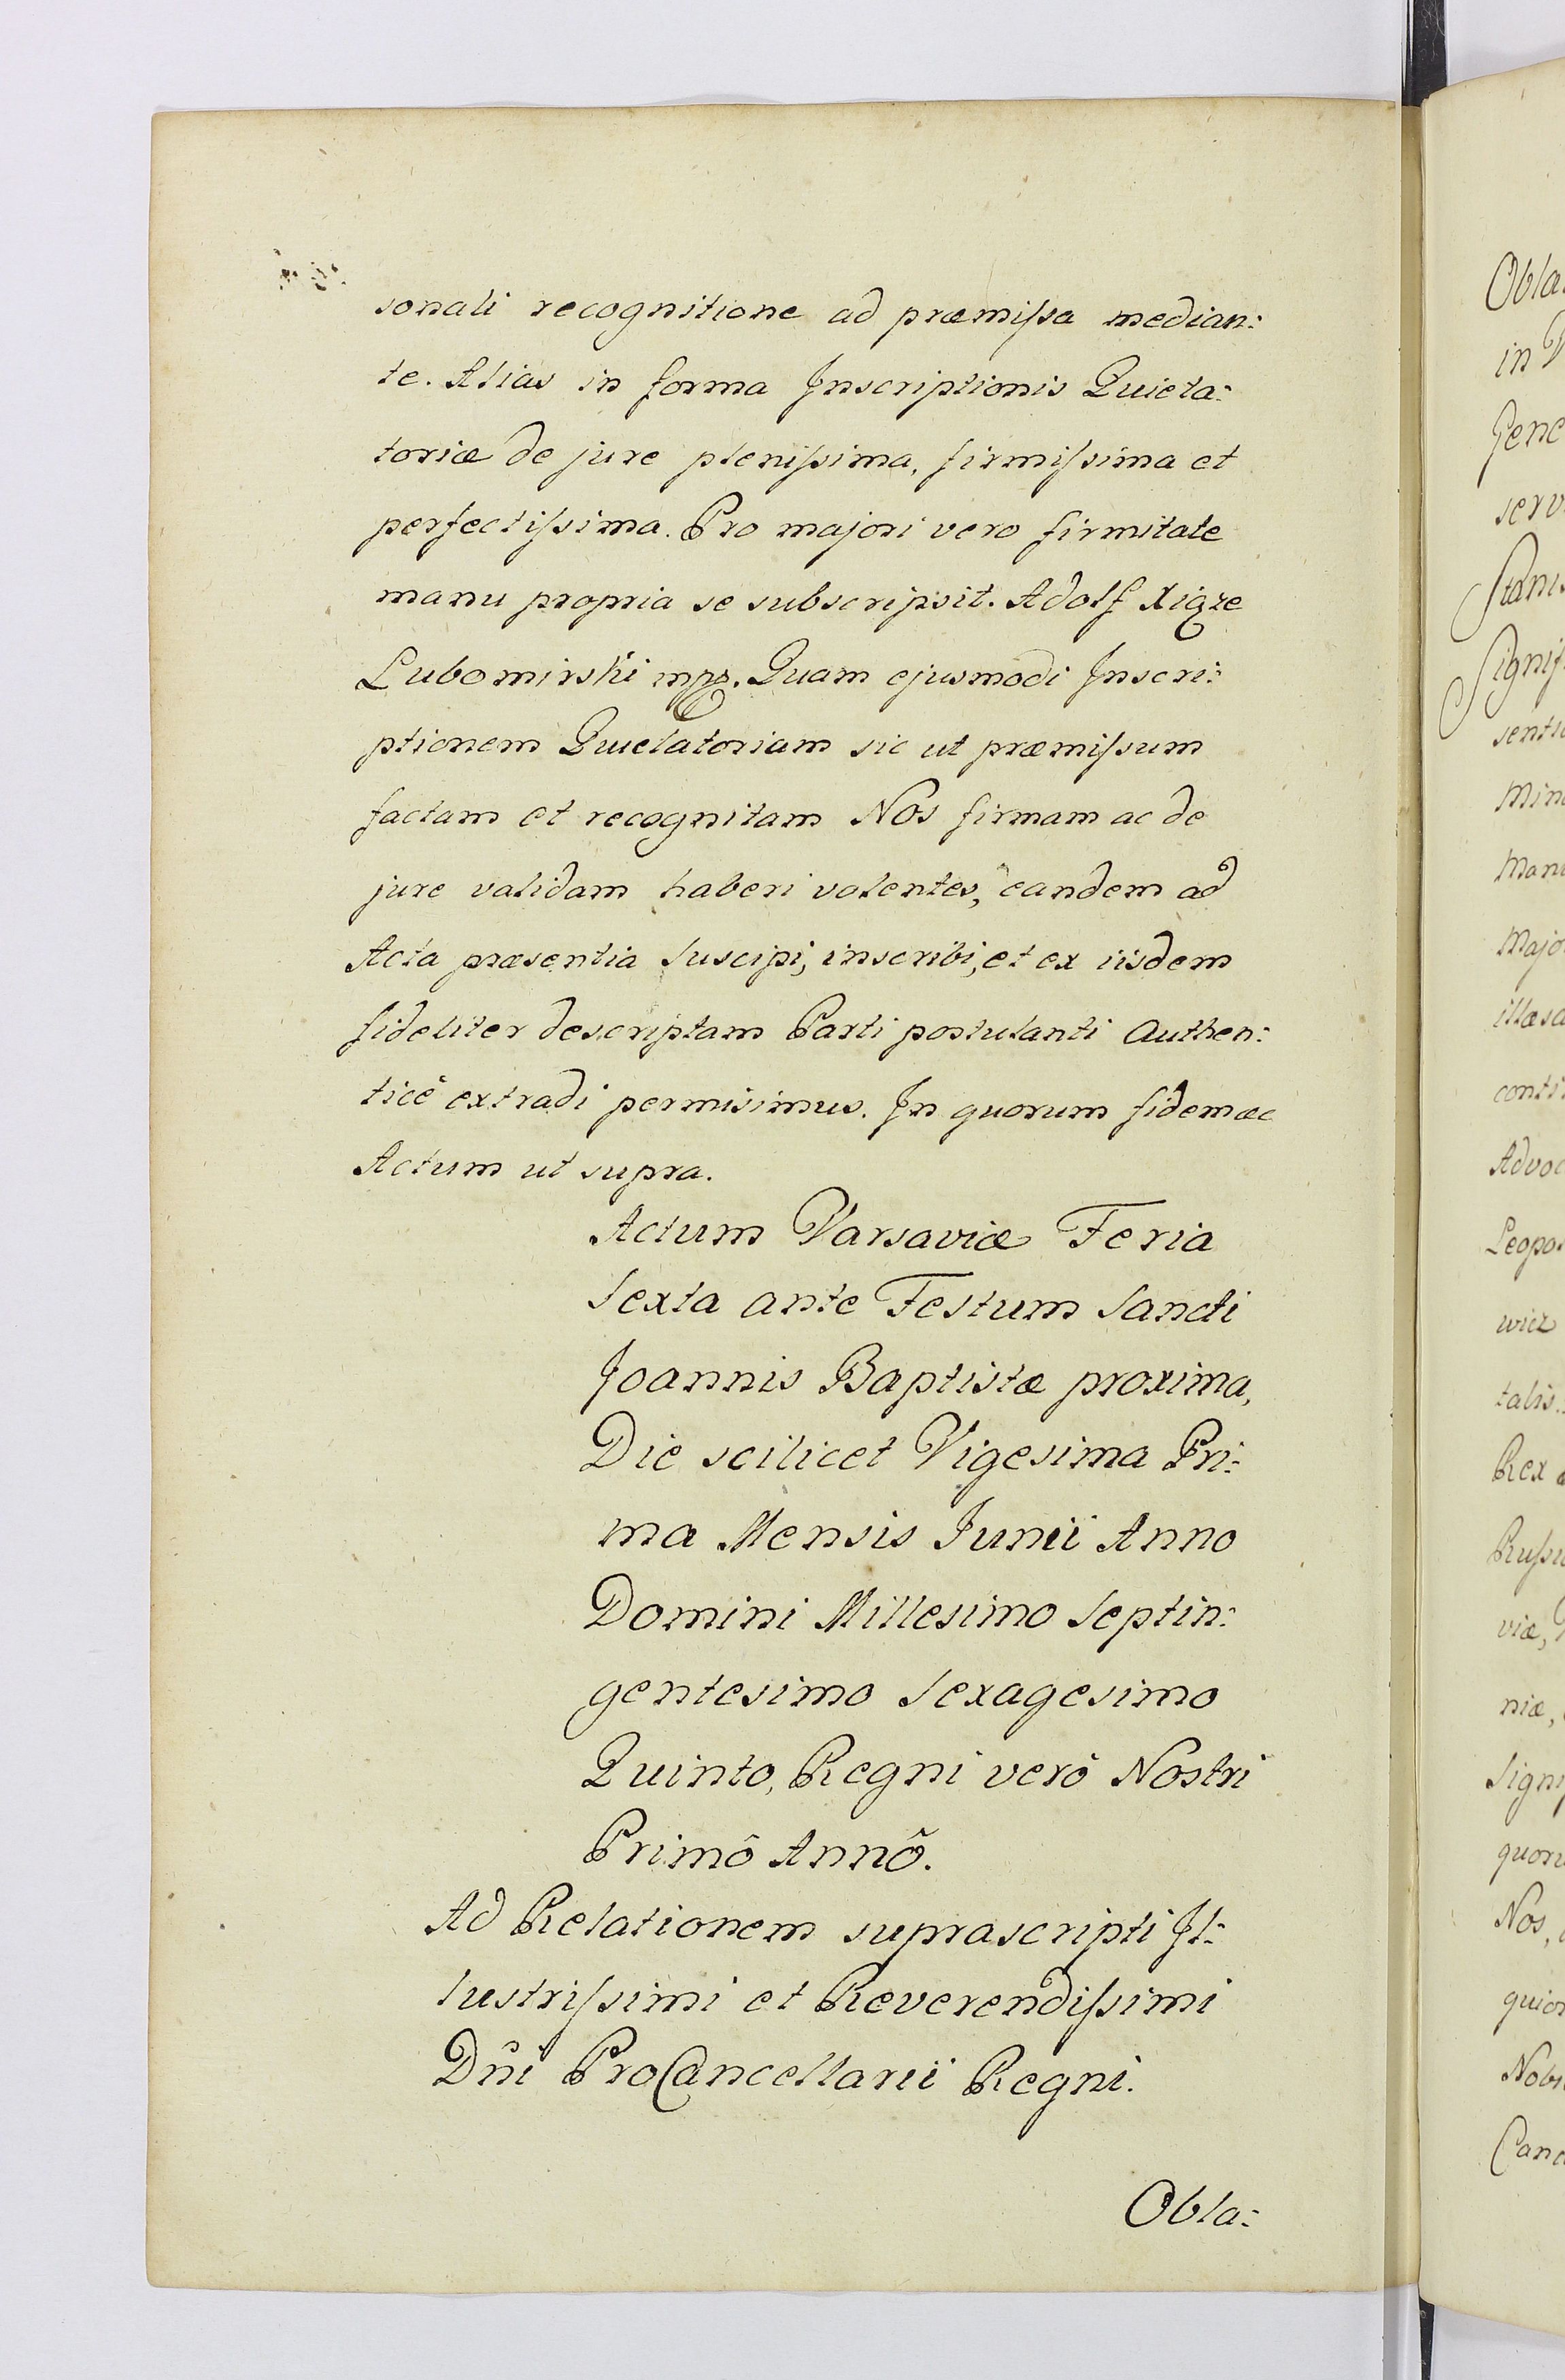 sonali recognitione ad præmiſsa median:
te. Alias in forma Inscriptionis Quieta:
toriæ de jure pleniſsima, firmiſsima et
perfectiſsima. Pro majori vero firmitate
manu propria se subscripsit. Adolf Xiąze
Lubomirski mpp. Quam ejusmodi Inscri:
ptionem Quietatoriam sic ut præmiſsum
factam et recognitam Nos firmam ac de
jure validam haberi volentes, eandem ad
Acta præsentia suscipi, inscribi, et ex iisdem
fideliter descriptam Parti postulanti Authen:
ticè extradi permisimus. In quorum fidem ac
Actum ut supra.
Actum Varsaviæ Feria
Sexta ante Festum Sancti
Joannis Baptistæ proxima,
Die scilicet Vigesima Pri:
ma Mensis Junii Anno
Domini Millesimo Septin:
gentesimo Sexagesimo
Quinto, Regni verò Nostri
Primô Annô.
Ad Relationem suprascripti Il:
lustriſsimi et Reverendiſsimi
Dñi ProCancellarii Regni.
Obla:
Obla
in V
Gene
serv
Stanis
Signif
senti
Min
Manu
Majo
illæsa
conti
Advoc
Leopo
wicz
talis.
Rex
Ruſsi
viæ,
niæ,
Signi
quoru
Nos,
quior
Nobi
Canc